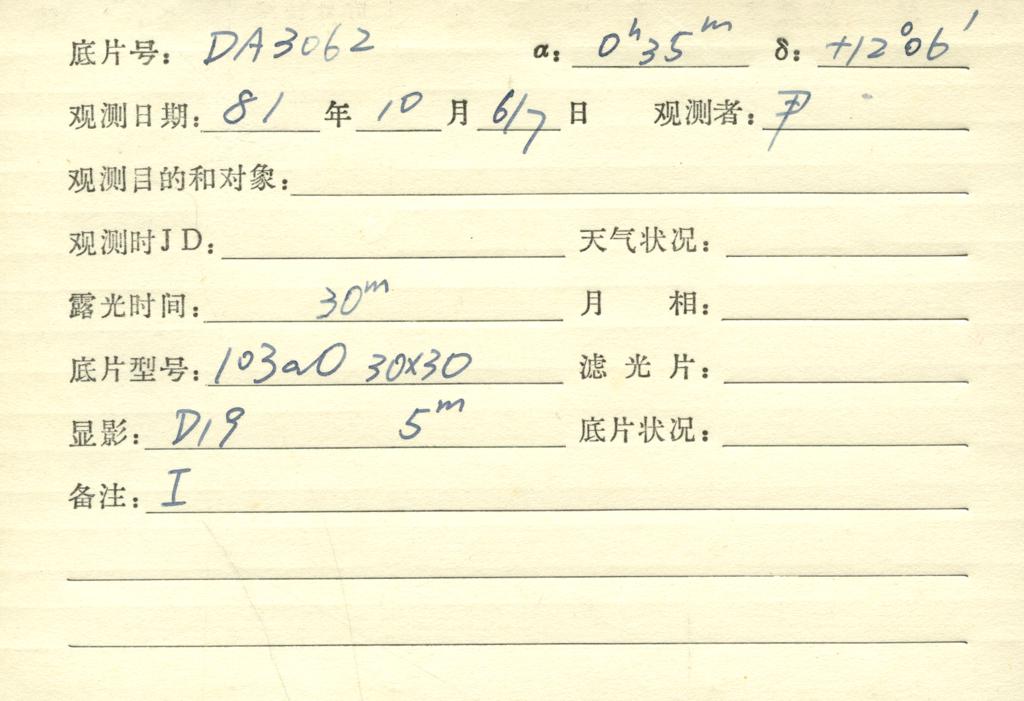 底片号: DA3062 α: 0ʰ35ᵐ δ: +12°06′
观测日期: 81 年 10 月 6/7 日 观测者: 尹
观测目的和对象:
观测时JD: 天气状况:
露光时间: 30ᵐ 月 相:
底片型号: 103aO 30×30 滤光片:
显影: D19 5ᵐ 底片状况:
备注: I